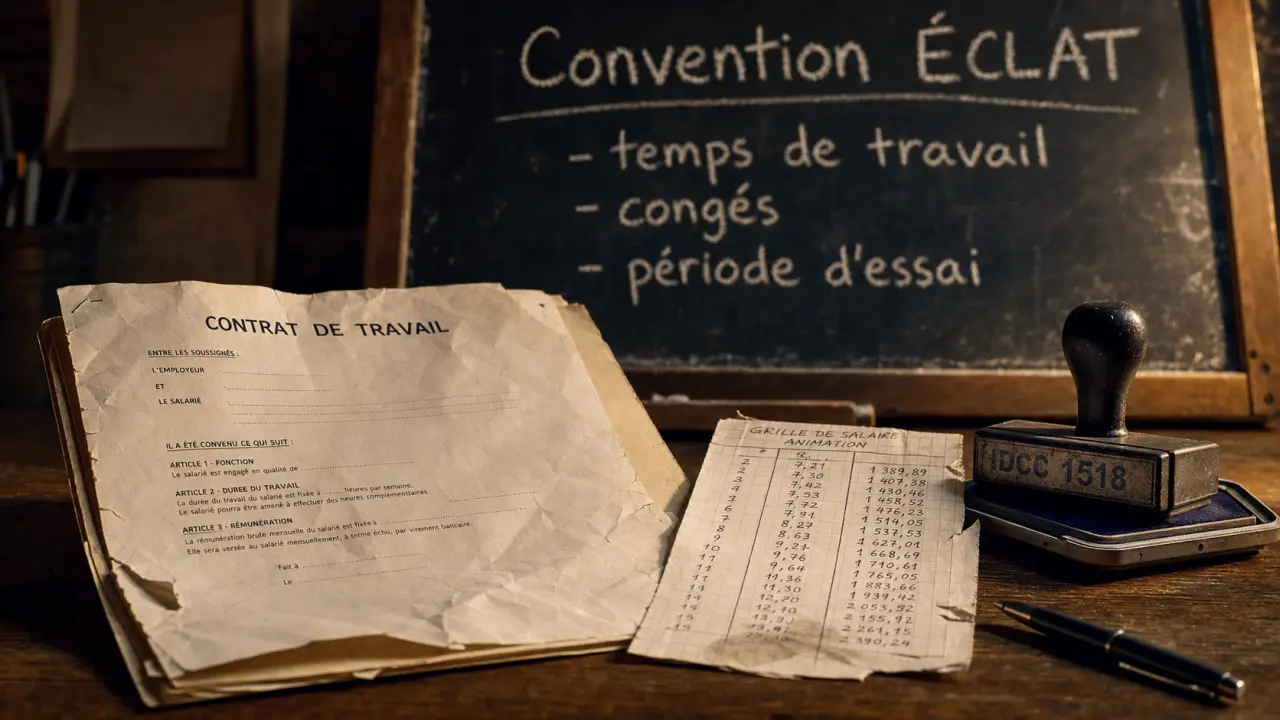 Convention ÉCLAT
- temps de travail
- congés
- période d'essai
CONTRAT DE TRAVAIL
ENTRE LES SOUSSIGNÉS :
L'EMPLOYEUR
ET
LE SALARIÉ
IL A ÉTÉ CONVENU CE QUI SUIT :
ARTICLE 1 - FONCTION
Le salarié est engagé en qualité de
ARTICLE 2 - DURÉE DU TRAVAIL
La durée du travail du salarié est fixée à ...... heures par semaine.
Le salarié pourra être amené à effectuer des heures complémentaires.
ARTICLE 3 - RÉMUNÉRATION
La rémunération brute mensuelle du salarié est fixée à
Elle sera versée au salarié mensuellement, à terme échu, par virement bancaire.
Fait à
Le
GRILLE DE SALAIRE
ANIMATION
2 7,21 1 389,89
2 7,30 1 407,38
3 7,42 1 430,46
4 7,53 1 458,52
1 7,72 1 476,23
6 7,91 1 514,05
7 8,27 1 537,53
8 8,63 1 627,01
9 9,21 1 668,69
10 9,76 1 710,61
11 9,64 1 765,05
11 11,36 1 883,66
11 11,30 1 939,42
14 12,20 2 053,52
12,70 2 155,92
15 2 261,15
15 2 390,24
IDCC 1518